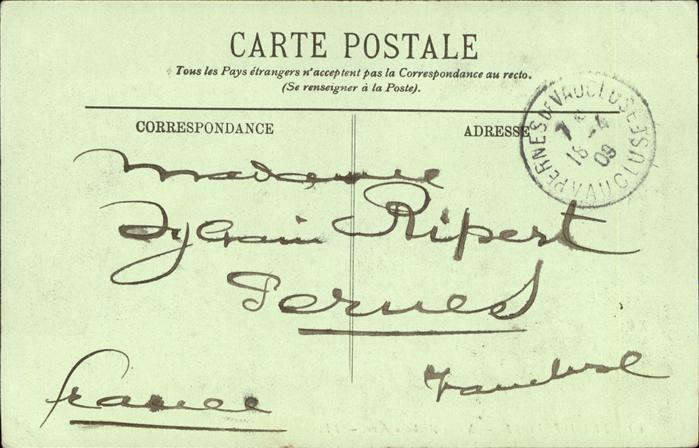 CARTE POSTALE
Tous les Pays étrangers n'acceptent pas la Correspondance au recto.
(Se renseigner à la Poste).
CORRESPONDANCE
ADRESSE
PERNES DE VAUCLUSE
VAUCLUSE
7
18 4
09
Madame
Sylvain Ripert
Pernes
Vaucluse
france